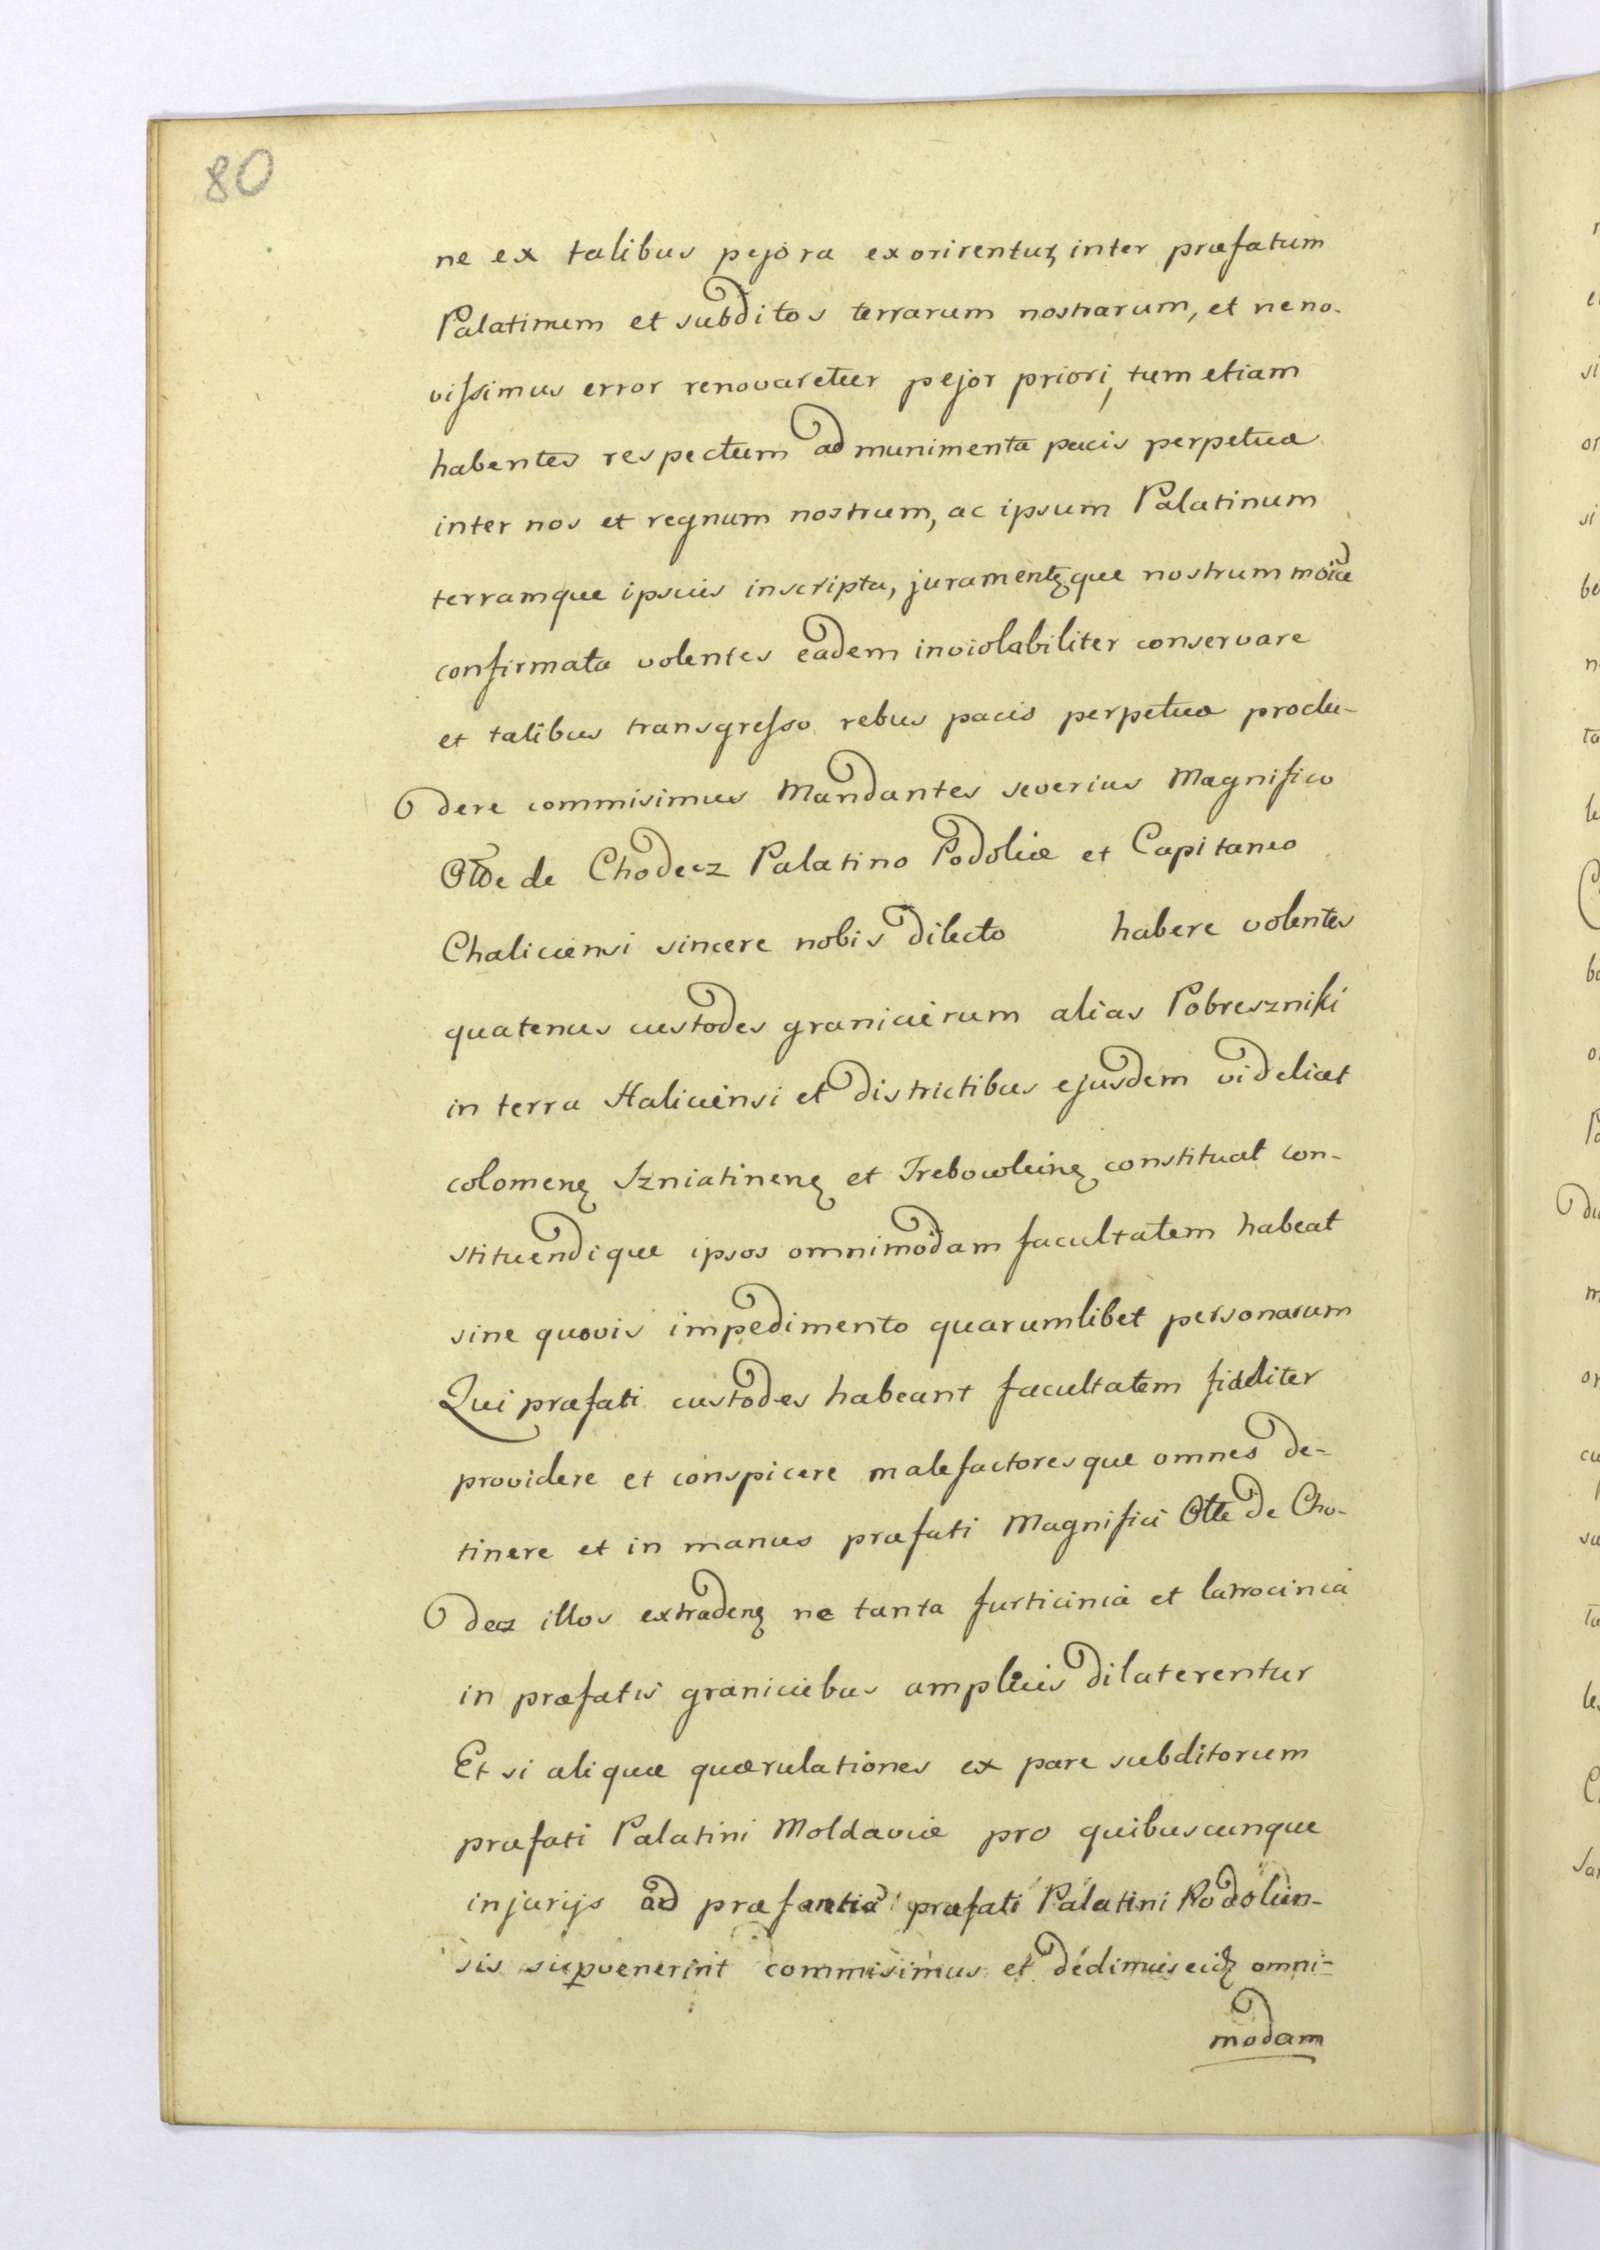 80
ne ex talibus pejora exorirentuꝫ inter præfatum
Palatinum et subditos terrarum nostrarum, et ne no-
vissimus error renovaretur pejor priori, tum etiam
habentes respectum ad munimenta pacis perpetuæ
inter nos et regnum nostrum, ac ipsum Palatinum
terramque ipsius inscripta, juramentꝫque nostrum
confirmata volentes eadem inviolabiliter conservare
et talibus transgresso rebus pacis perpetuæ proclu-
dere commisimus Mandantes severius Magnifico
de Chodecz Palatino Podoliæ et Capitaneo
Chaliciensi sincere nobis dilecto habere volentes
quatenus custodes granicierum alias Pobreszniki
in terra Haliciensi et districtibus ejusdem videlicet
colomenꝫ Szniatinenꝫ et Trebowleinꝫ constituat con-
stituendique ipsos omnimodam facultatem habeat
sine quovis impedimento quarumlibet personarum
Qui præfati custodes habeant facultatem fideliter
providere et conspicere malefactoresque omnes de-
tinere et in manus præfati Magnifici Otte de Cho-
decz illos extradenꝫ ne tanta furticinia et latrocinia
in præfatis graniciebus amplius dilaterentur
Et si aliquæ quærulationes ex pare subditorum
præfati Palatini Moldaviæ pro quibuscunque
injurijs ad præsantiã præfati Palatini Podolien-
sis supvenerint commisimus et dedimus eidꝫ omni-
modam